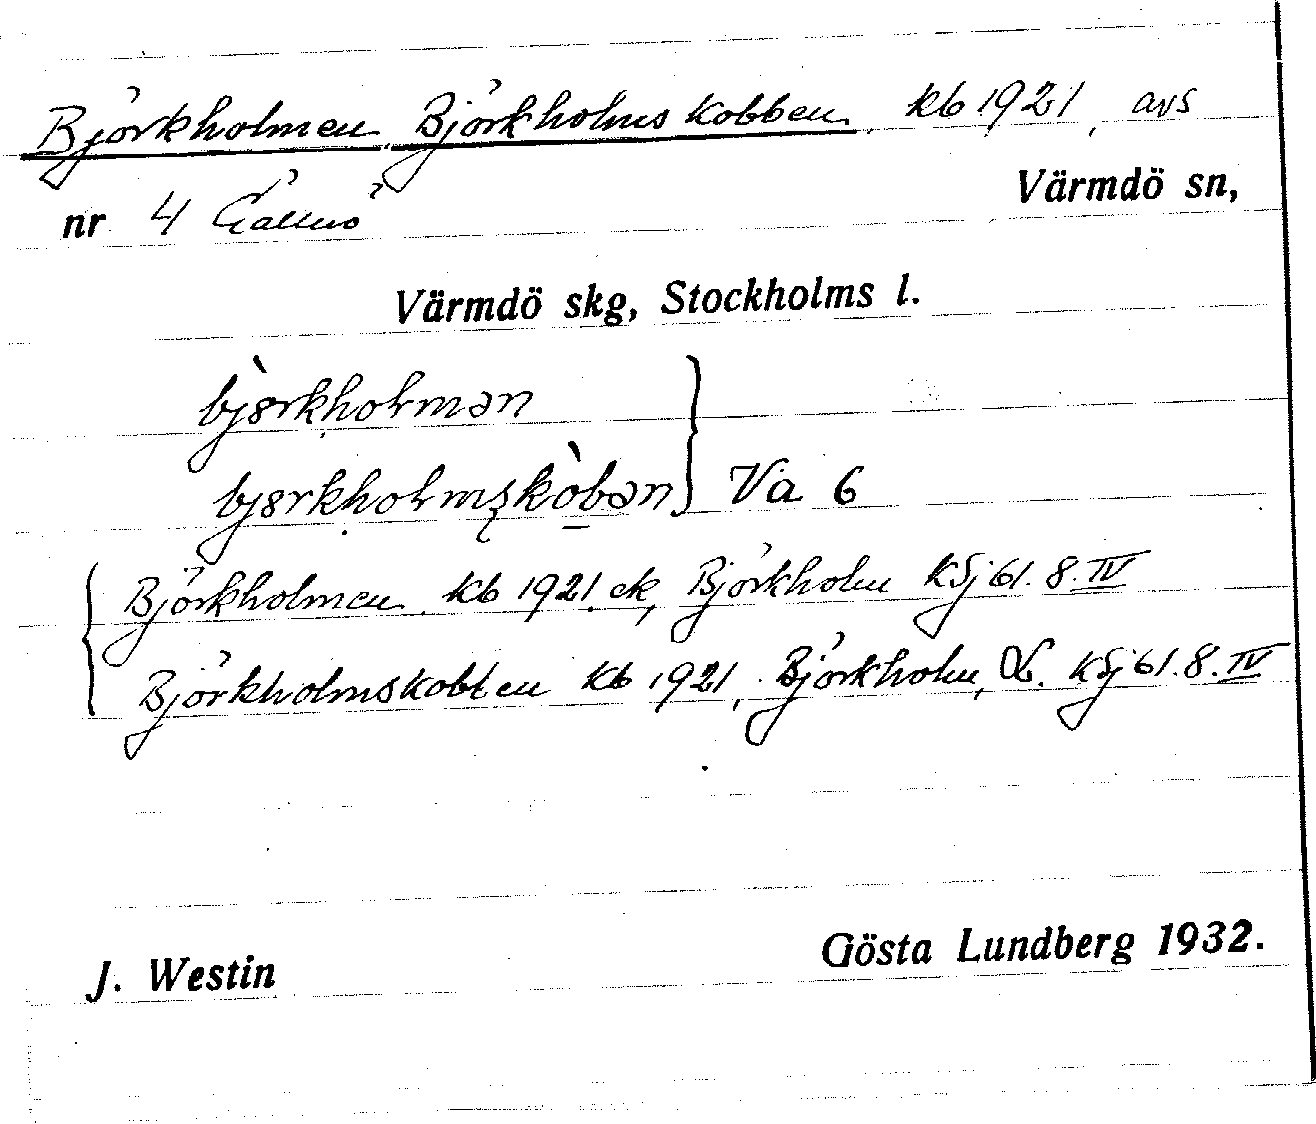 Björkholmen, Björkholmskobben, kb 1921, avs
nr 4 Gällnö Värmdö sn,
Värmdö skg, Stockholms l.
bjørkholmən
bjørkholmskobən } Va 6
Björkholmen kb 1921. ek, Björkholm KSj 61. 8. IV
Björkholmskobben kb 1921, Björkholm, KSj 61. 8. IV
J. Westin Gösta Lundberg 1932.